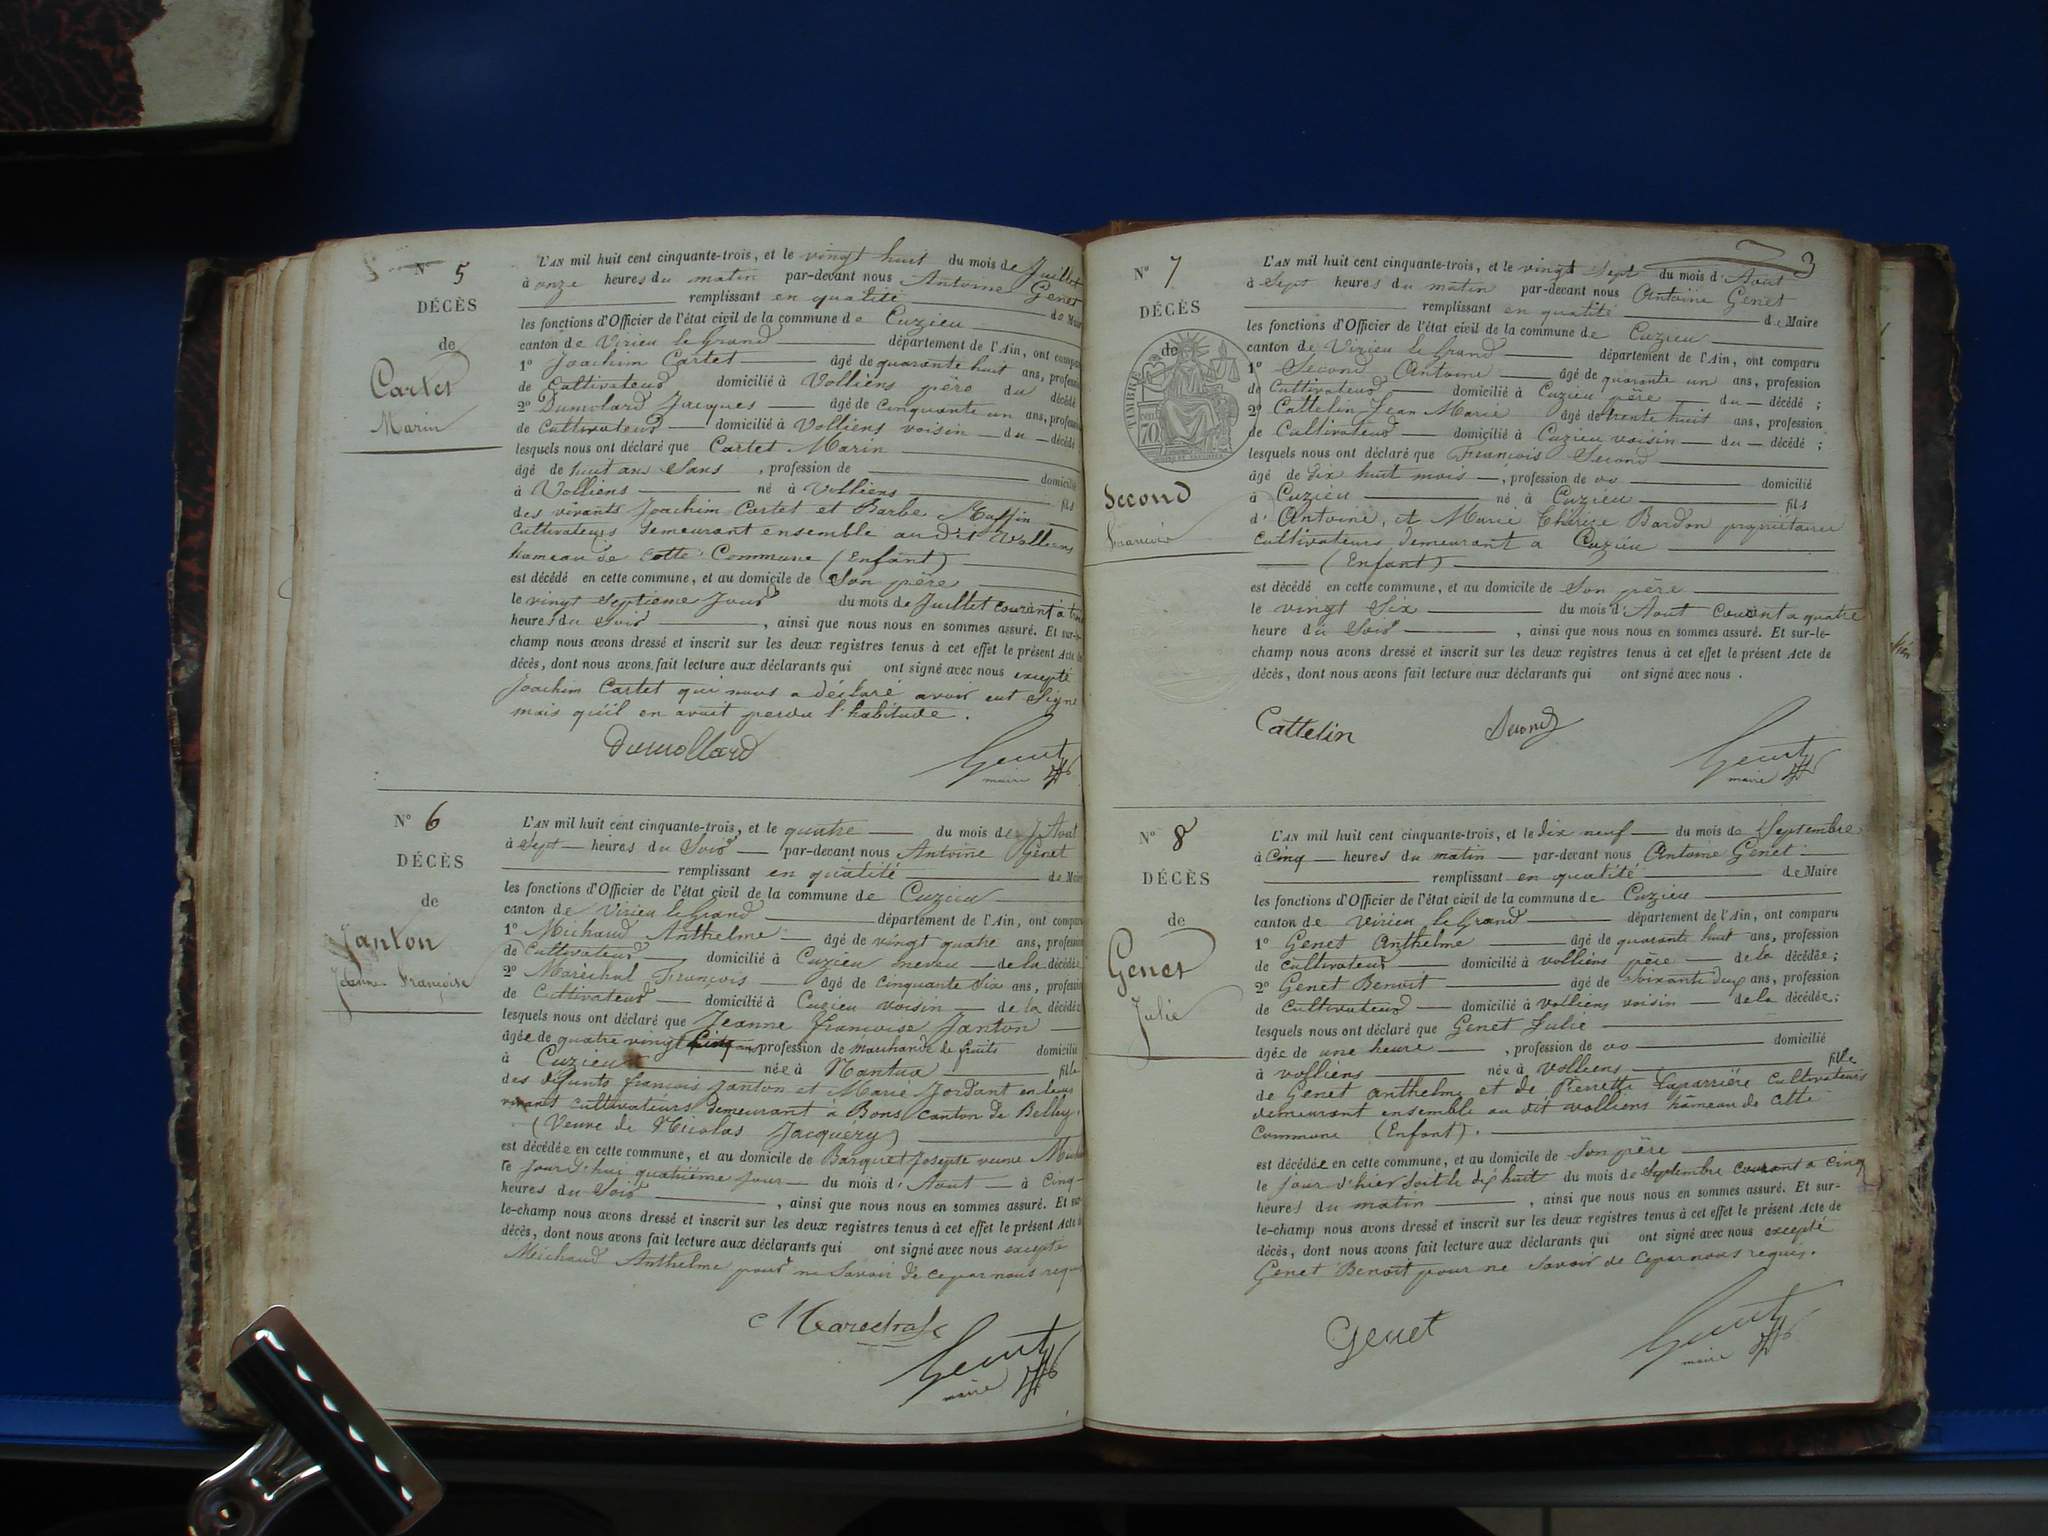 N° 5
DÉCÈS
de
Cartet
Marin
L'AN mil huit cent cinquante-trois, et le vingt huit du mois de Juillet
à onze heures du matin par-devant nous Antoine Genet
remplissant en qualité de Maire
les fonctions d'Officier de l'état civil de la commune de Cuzieu
canton de Virieu le Grand département de l'Ain, ont comparu
1° Joachim Cartet âgé de quarante huit ans, profession
de Cultivateur domicilié à Volliens père du décédé
2° Dumolard Jacques âgé de cinquante un ans, profession
de Cultivateur domicilié à Volliens voisin du décédé
lesquels nous ont déclaré que Cartet Marin
âgé de huit ans Sans , profession de domicilié
à Volliens né à Volliens fils
des vivants Joachim Cartet et Barbe Maffin
Cultivateurs demeurant ensemble au dit Volliens
hameau de cette Commune (Enfant)
est décédé en cette commune, et au domicile de Son père
le vingt Septième Jour du mois de Juillet courant à
heures du Soir , ainsi que nous nous en sommes assuré. Et sur-le-
champ nous avons dressé et inscrit sur les deux registres tenus à cet effet le présent Acte de
décès, dont nous avons fait lecture aux déclarants qui ont signé avec nous excepté
Joachim Cartet qui nous a déclaré avoir eut Signé
mais qu'il en avait perdu l'habitude.
Dumollard
Genet
maire
N° 6
DÉCÈS
de
Janton
Jeanne Françoise
L'AN mil huit cent cinquante-trois, et le quatre du mois de Aout
à Sept heures du Soir par-devant nous Antoine Genet
remplissant en qualité de Maire
les fonctions d'Officier de l'état civil de la commune de Cuzieu
canton de Virieu le Grand département de l'Ain, ont comparu
1° Michaud Anthelme âgé de vingt quatre ans, profession
de Cultivateur domicilié à Cuzieu neveu de la décédée
2° Maréchal François âgé de cinquante Six ans, profession
de Cultivateur domicilié à Cuzieu voisin de la décédée
lesquels nous ont déclaré que Jeanne françoise Janton
âgée de quatre vingt Cinq ans profession de marchande de fruits domicilié
à Cuzieu née à Nantua fille
des défunts françois Janton et Marie Jordant en leurs
vivants cultivateurs demeurant à Bons canton de Belley,
(Veuve de Nicolas Jacquéry)
est décédée en cette commune, et au domicile de Barquet Josepte veuve
le Jour d'hui quatrième Jour du mois d'Aout à Cinq
heures du Soir , ainsi que nous nous en sommes assuré. Et sur-
le-champ nous avons dressé et inscrit sur les deux registres tenus à cet effet le présent Acte de
décès, dont nous avons fait lecture aux déclarants qui ont signé avec nous excepté
Michaud Anthelme pour ne Savoir de ce par nous requis
Marechal
Genet
maire
3
N° 7
DÉCÈS
de
TIMBRE
70
Second
francois
L'AN mil huit cent cinquante-trois, et le vingt Sept du mois d'Aout
à Sept heures du matin par-devant nous Antoine Genet
remplissant en qualité de Maire
les fonctions d'Officier de l'état civil de la commune de Cuzieu
canton de Virieu le Grand département de l'Ain, ont comparu
1° Second Antoine âgé de quarante un ans, profession
de Cultivateur domicilié à Cuzieu père du décédé ;
2° Cattelin Jean Marie âgé de trente huit ans, profession
de Cultivateur domicilié à Cuzieu voisin du décédé ;
lesquels nous ont déclaré que François Second
âgé de dix huit mois , profession de oo domicilié
à Cuzieu né à Cuzieu fils
d'Antoine, et Marie Thérèse Bardon propriétaires
cultivateurs demeurant a Cuzieu
(Enfant)
est décédé en cette commune, et au domicile de Son père
le vingt Six du mois d'Aout courant a quatre
heure du Soir , ainsi que nous nous en sommes assuré. Et sur-le-
champ nous avons dressé et inscrit sur les deux registres tenus à cet effet le présent Acte de
décès, dont nous avons fait lecture aux déclarants qui ont signé avec nous .
Cattelin Second
Genet
maire
N° 8
DÉCÈS
de
Genet
Julie
L'AN mil huit cent cinquante-trois, et le dix neuf du mois de Septembre
à Cinq heures du matin par-devant nous Antoine Genet
remplissant en qualité de Maire
les fonctions d'Officier de l'état civil de la commune de Cuzieu
canton de Virieu le Grand département de l'Ain, ont comparu
1° Genet Anthelme âgé de quarante huit ans, profession
de cultivateur domicilié à volliens père de la décédée;
2° Genet Benoit âgé de Soixante deux ans, profession
de cultivateur domicilié à volliens voisin de la décédée;
lesquels nous ont déclaré que Genet Julie
âgée de une heure , profession de oo domicilié
à volliens née à volliens fille
de Genet anthelme et de Pierrette Laparrière cultivateurs
demeurant ensemble au dit volliens hameau de cette
commune (Enfant).
est décédée en cette commune, et au domicile de Son père
le jour d'hier soit le dix huit du mois de Septembre courant a cinq
heures du matin , ainsi que nous nous en sommes assuré. Et sur-
le-champ nous avons dressé et inscrit sur les deux registres tenus à cet effet le présent Acte de
décès, dont nous avons fait lecture aux déclarants qui ont signé avec nous excepté
Genet Benoit pour ne Savoir de ce par nous requis.
Genet
Genet
maire